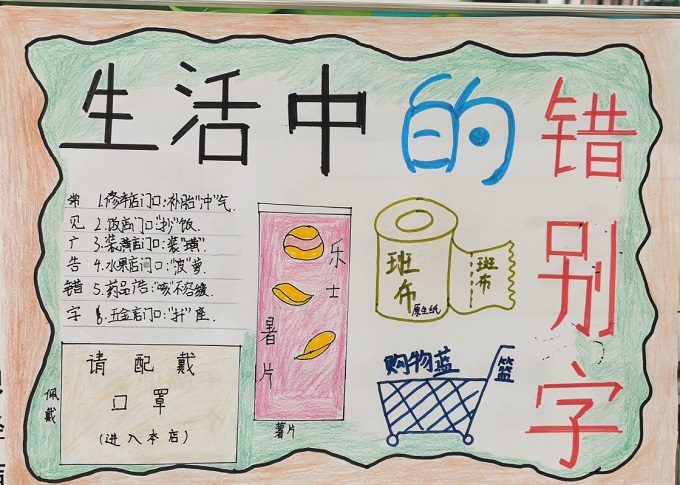 生活中的错别字
常见广告错字
1.修车店门口:补胎"冲"气.
2.饭店门口:"抄"饭.
3.装潢店门口:装"璜".
4.水果店门口:"波"萝.
5.药品广告:"咳"不容缓.
6.五金店门口:"扦"座.
请配戴
口罩
(进入本店)
佩戴
乐士
暑片
薯片
班布
原生纸
斑布
购物蓝
篮